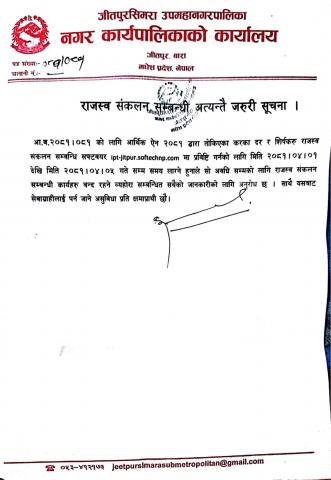 जीतपुरसिमरा उपमहानगरपालिका
नगर कार्यपालिकाको कार्यालय
जीतपुर, बारा
मधेश प्रदेश, नेपाल
पत्र संख्या:-
चलानी नं.:-
राजस्व संकलन सम्बन्धी अत्यन्तै जरुरी सूचना ।
आ.ब.२०८१।०८१ को लागि आर्थिक ऐन २०८१ द्वारा तोकिएका करका दर र शिर्षकरु राजस्व
संकलन सम्बन्धि सफ्टवयर ipt-jitpur.softechnp.com मा प्रविष्टि गर्नको लागि मिति २०८१/०४/०१
देखि मिति २०८१/०४/०५ गते सम्म समय लाग्ने हुनाले सो अवधि सम्मको लागि राजस्व संकलन
सम्बन्धी कार्यहरु बन्द रहने व्यहोरा सम्बन्धित सबैको जानकारीको लागि अनुरोध छ । साथै यसवाट
सेवाग्राहीलाई पर्न जाने असुबिधा प्रति क्षमाप्राथी छौं।
☎ ०५३-४१२१७३ jeetpursimarasubmetropolitan@gmail.com